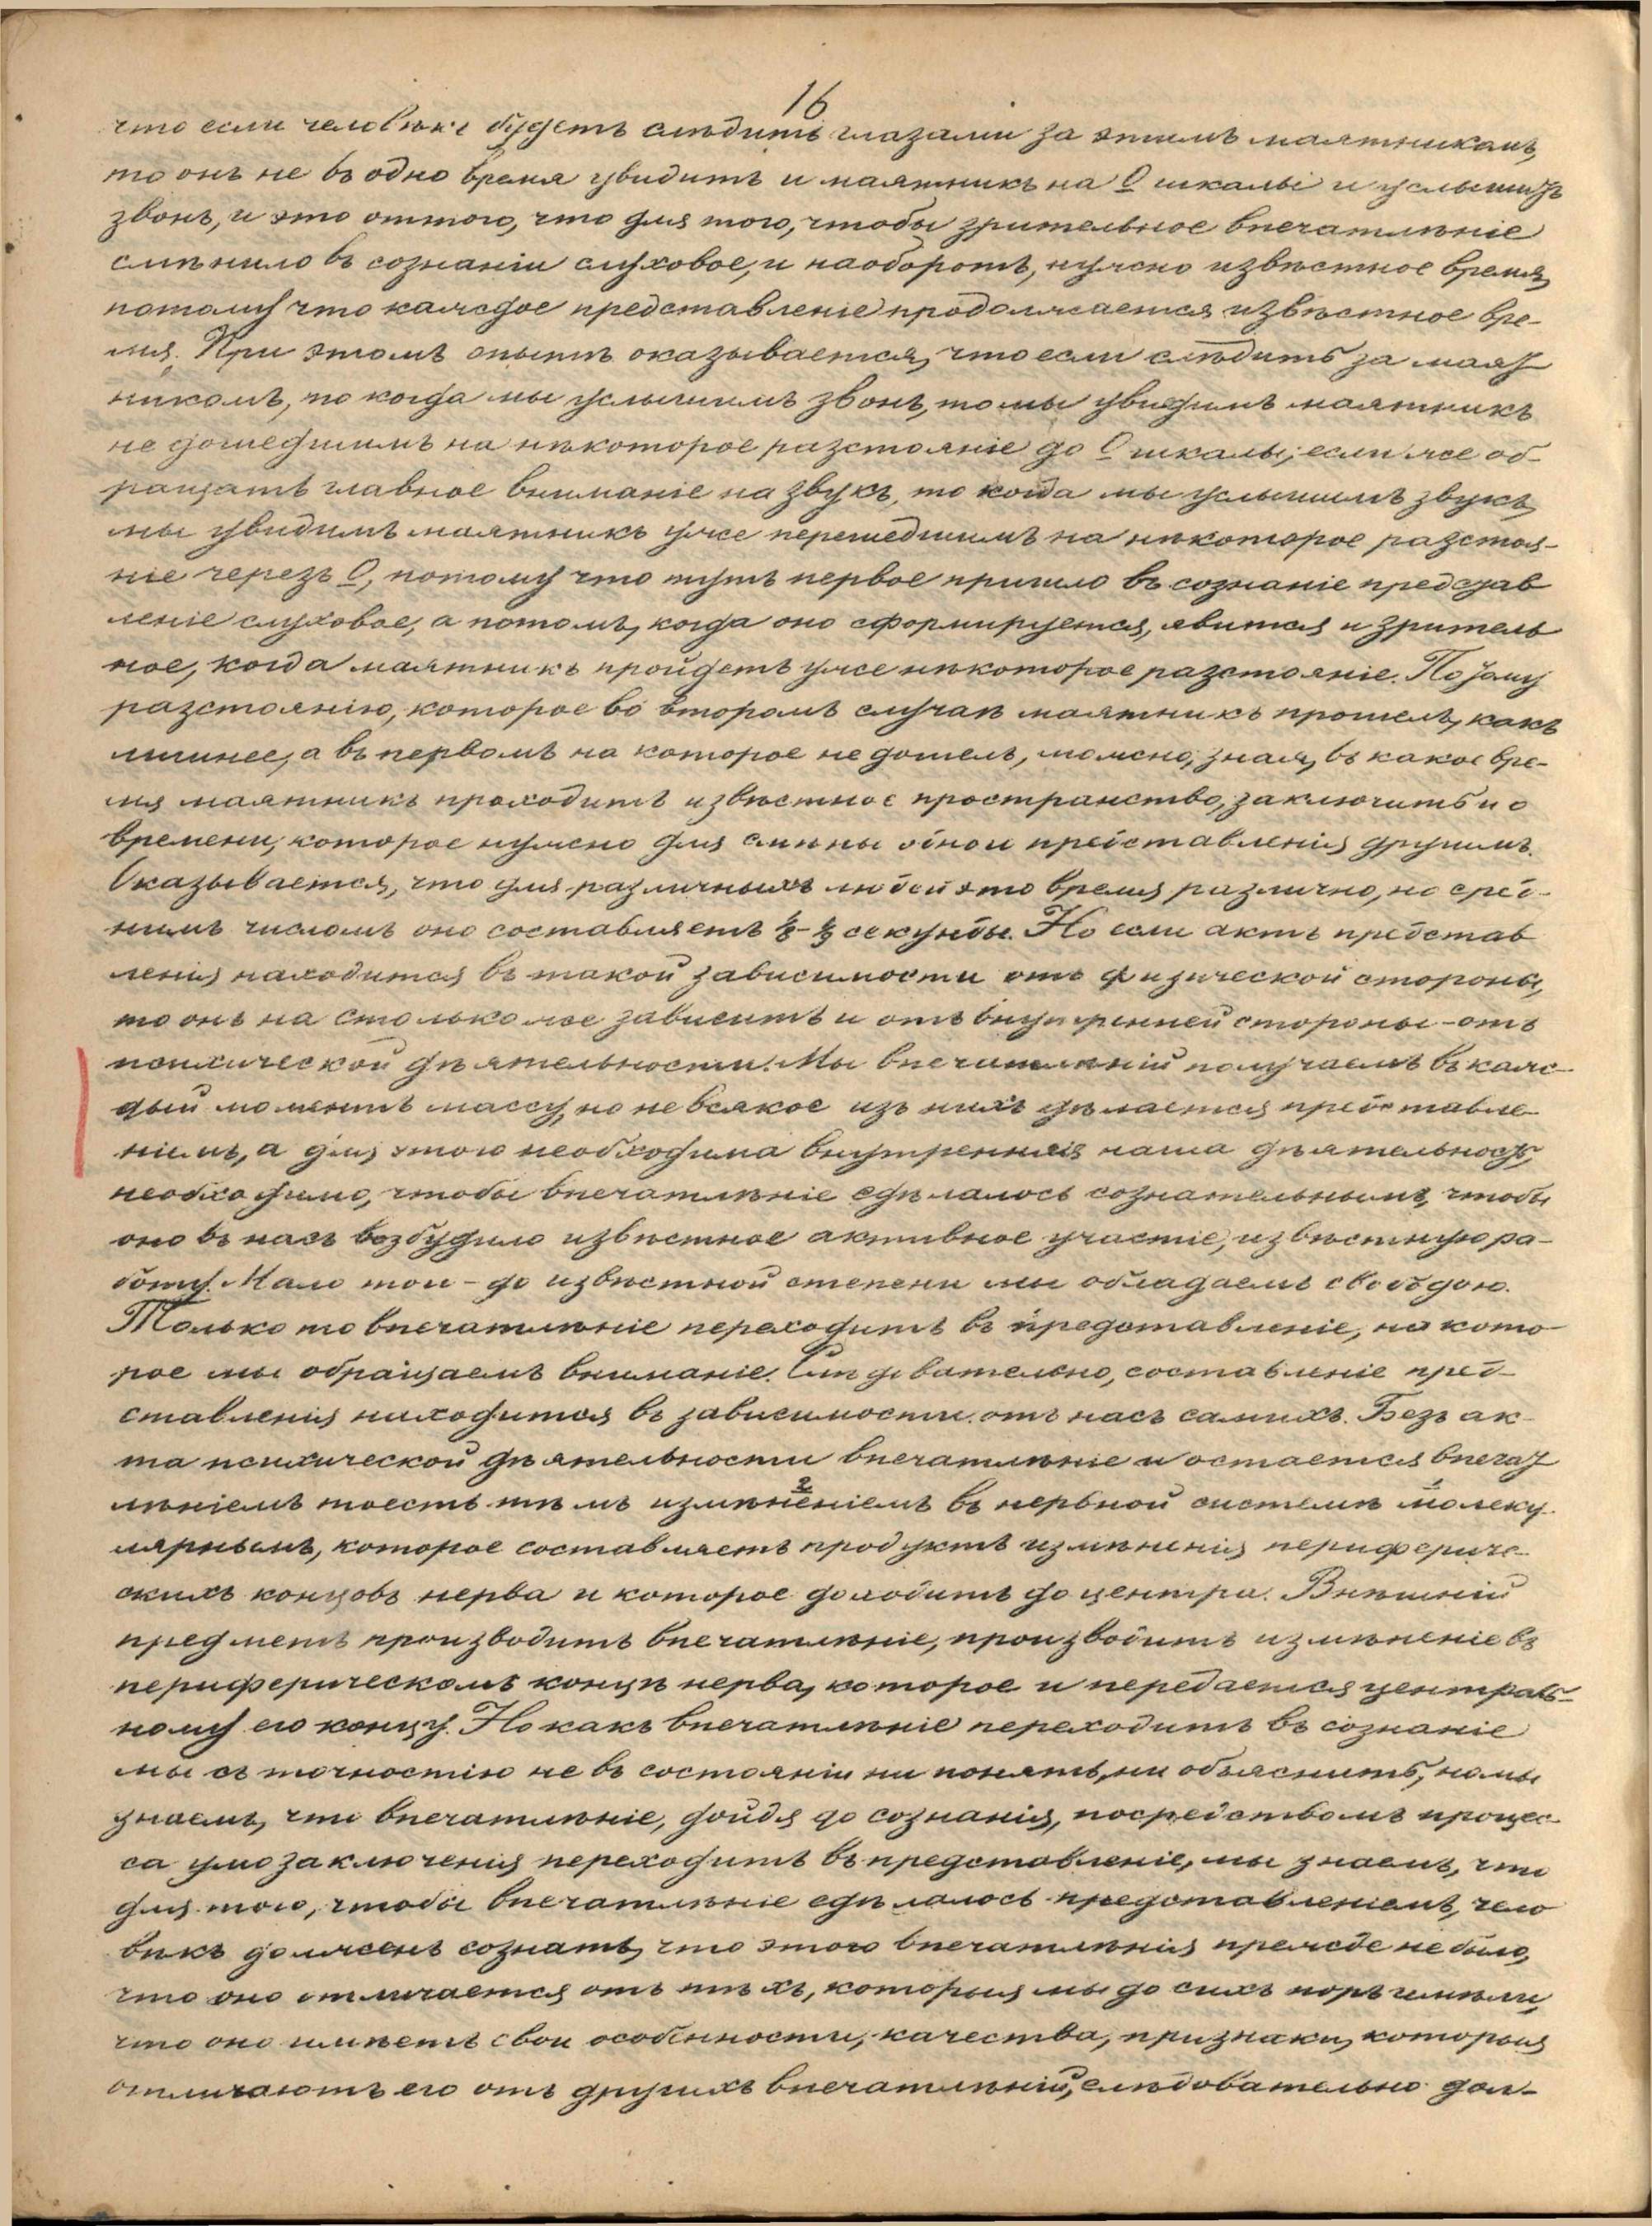 16
что если человѣкъ будетъ слѣдить глазами за этимъ маятникомъ,
то онъ не въ одно время увидитъ и маятникъ на 0 шкалы и услышитъ
звонъ, и это оттого, что для того, чтобы зрительное впечатлѣніе
смѣнило въ сознаніи слуховое, и наоборотъ, нужно извѣстное время,
потому что каждое представленіе продолжается извѣстное вре-
мя. При этомъ опытѣ оказывается, что если слѣдить за маят
никомъ, то когда мы услышимъ звонъ, то мы увидимъ маятникъ
не дошедшимъ на нѣкоторое разстояніе до 0 шкалы; если же об-
ращать главное вниманіе на звукъ, то когда мы услышимъ звукъ,
мы увидимъ маятникъ уже перешедшимъ на нѣкоторое разстоя-
ніе черезъ 0, потому что тутъ первое пришло въ сознаніе представ
леніе слуховое, а потомъ, когда оно сформируется, явится и зритель
ное, когда маятникъ пройдетъ уже нѣкоторое разстояніе. По тому
разстоянію, которое во второмъ случаѣ маятникъ прошелъ, какъ
лишнее, а въ первомъ на которое не дошелъ, можно, зная, въ какое вре-
мя маятникъ проходитъ извѣстное пространство, заключить и о
времени, которое нужно для смѣны одного представленія другимъ.
Оказывается, что для различныхъ людей это время различно, но сред-
нимъ числомъ оно составляетъ секунды. Но если актъ представ
ленія находится въ такой зависимости отъ физической стороны,
то онъ на столько же зависитъ и отъ внутренней стороны - отъ
психической дѣятельности. Мы впечатлѣній получаемъ въ каж-
дый моментъ массу, но не всякое изъ нихъ дѣлается представле-
ніемъ, а для этого необходима внутренняя наша дѣятельность,
необходимо, чтобы впечатлѣніе сдѣлалось сознательнымъ, чтобы
оно въ насъ возбудило извѣстное активное участіе, извѣстную ра-
боту. Мало того - до извѣстной степени мы обладаемъ свободою.
Только то впечатлѣніе переходитъ въ представленіе, на кото-
рое мы обращаемъ вниманіе. Слѣдовательно, составленіе пред-
ставленія находится въ зависимости отъ насъ самихъ. Безъ ак-
та психической дѣятельности впечатлѣніе и остается впечат
лѣніемъ тоесть тѣмъ измѣненіемъ въ нервной системѣ молеку-
лярнымъ, которое составляетъ продуктъ измѣненія перифериче-
скихъ концовъ нерва и которое доходитъ до центра. Внѣшній
предметъ производитъ впечатлѣніе, производитъ измѣненіе въ
периферическомъ концѣ нерва, которое и передается централь-
ному его концу. Но какъ впечатлѣніе переходитъ въ сознаніе
мы съ точностію не въ состояніи ни понять, ни объяснить, но мы
знаемъ, что впечатлѣніе, дойдя до сознанія, посредствомъ процес-
са умозаключенія переходитъ въ представленіе, мы знаемъ, что
для того, чтобы впечатлѣніе сдѣлалось представленіемъ, чело
вѣкъ долженъ сознать, что этого впечатлѣнія прежде не было,
что оно отличается отъ тѣхъ, которыя мы до сихъ поръ имѣли,
что оно имѣетъ свои особенности, качества, признаки, которыя
отличаютъ его отъ другихъ впечатлѣній, слѣдовательно дол-